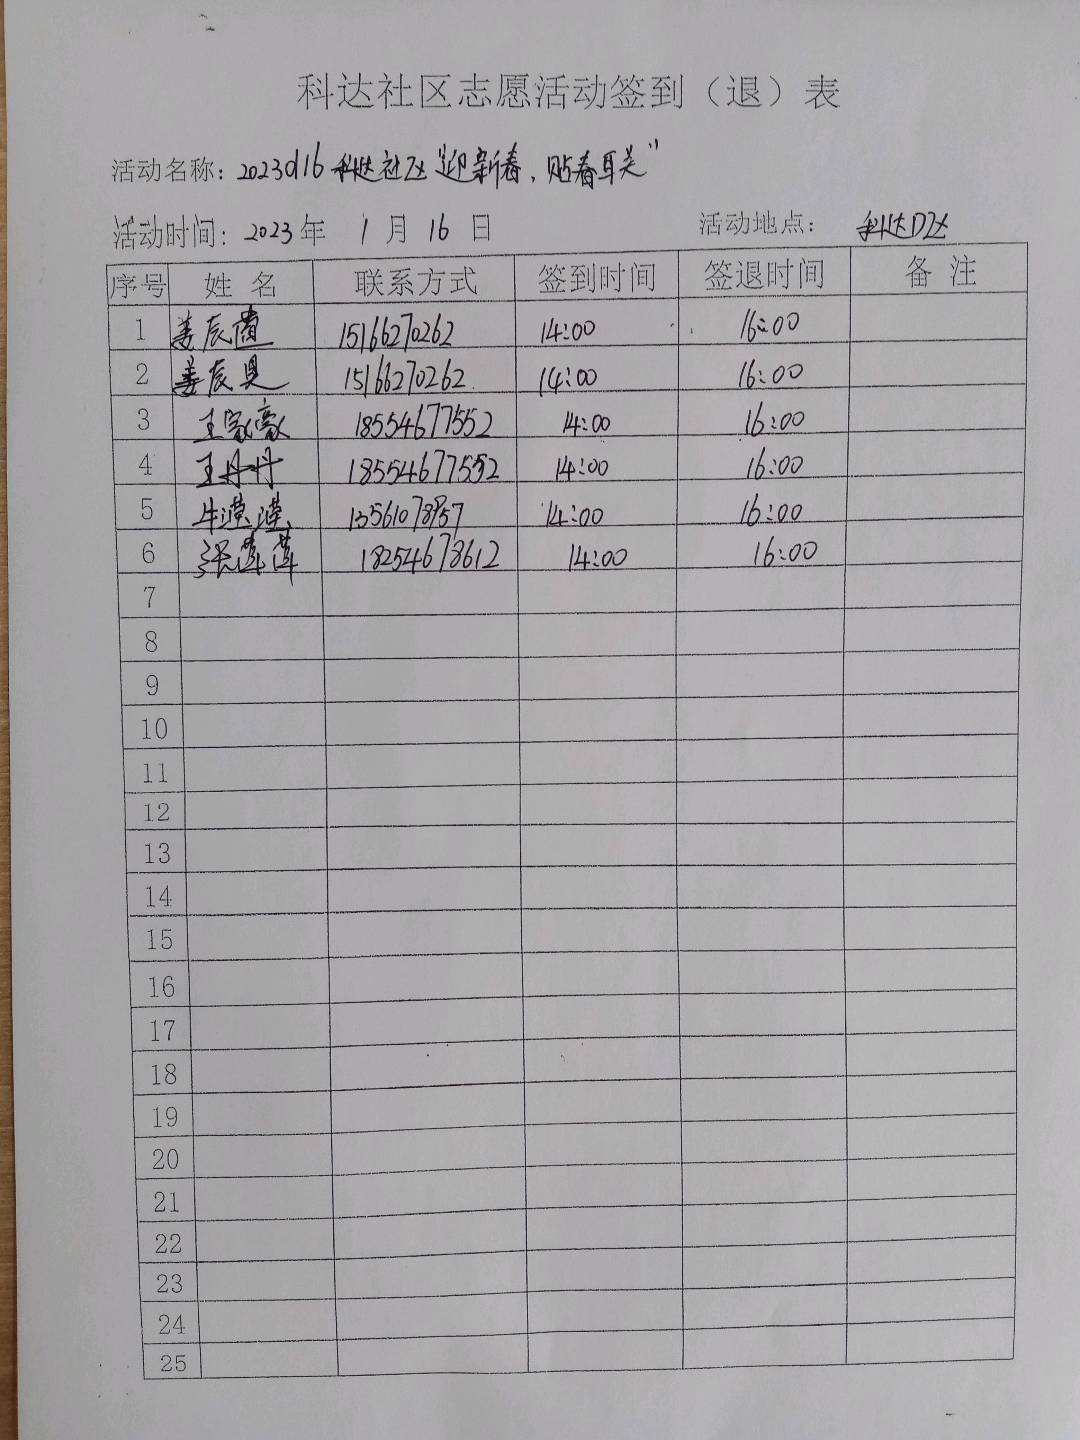 科达社区志愿活动签到（退）表
活动名称：20230116科达社区“迎新春，贴春联”
活动时间：2023年 1月16日 活动地点：科达D区
序号 姓名 联系方式 签到时间 签退时间 备注
1 姜辰 15166270262 14:00 16:00
2 姜辰 15166270262 14:00 16:00
3 王 18554677552 14:00 16:00
4 王丹丹 18554677552 14:00 16:00
5 牛 14:00 16:00
6 张 18254678612 14:00 16:00
7
8
9
10
11
12
13
14
15
16
17
18
19
20
21
22
23
24
25